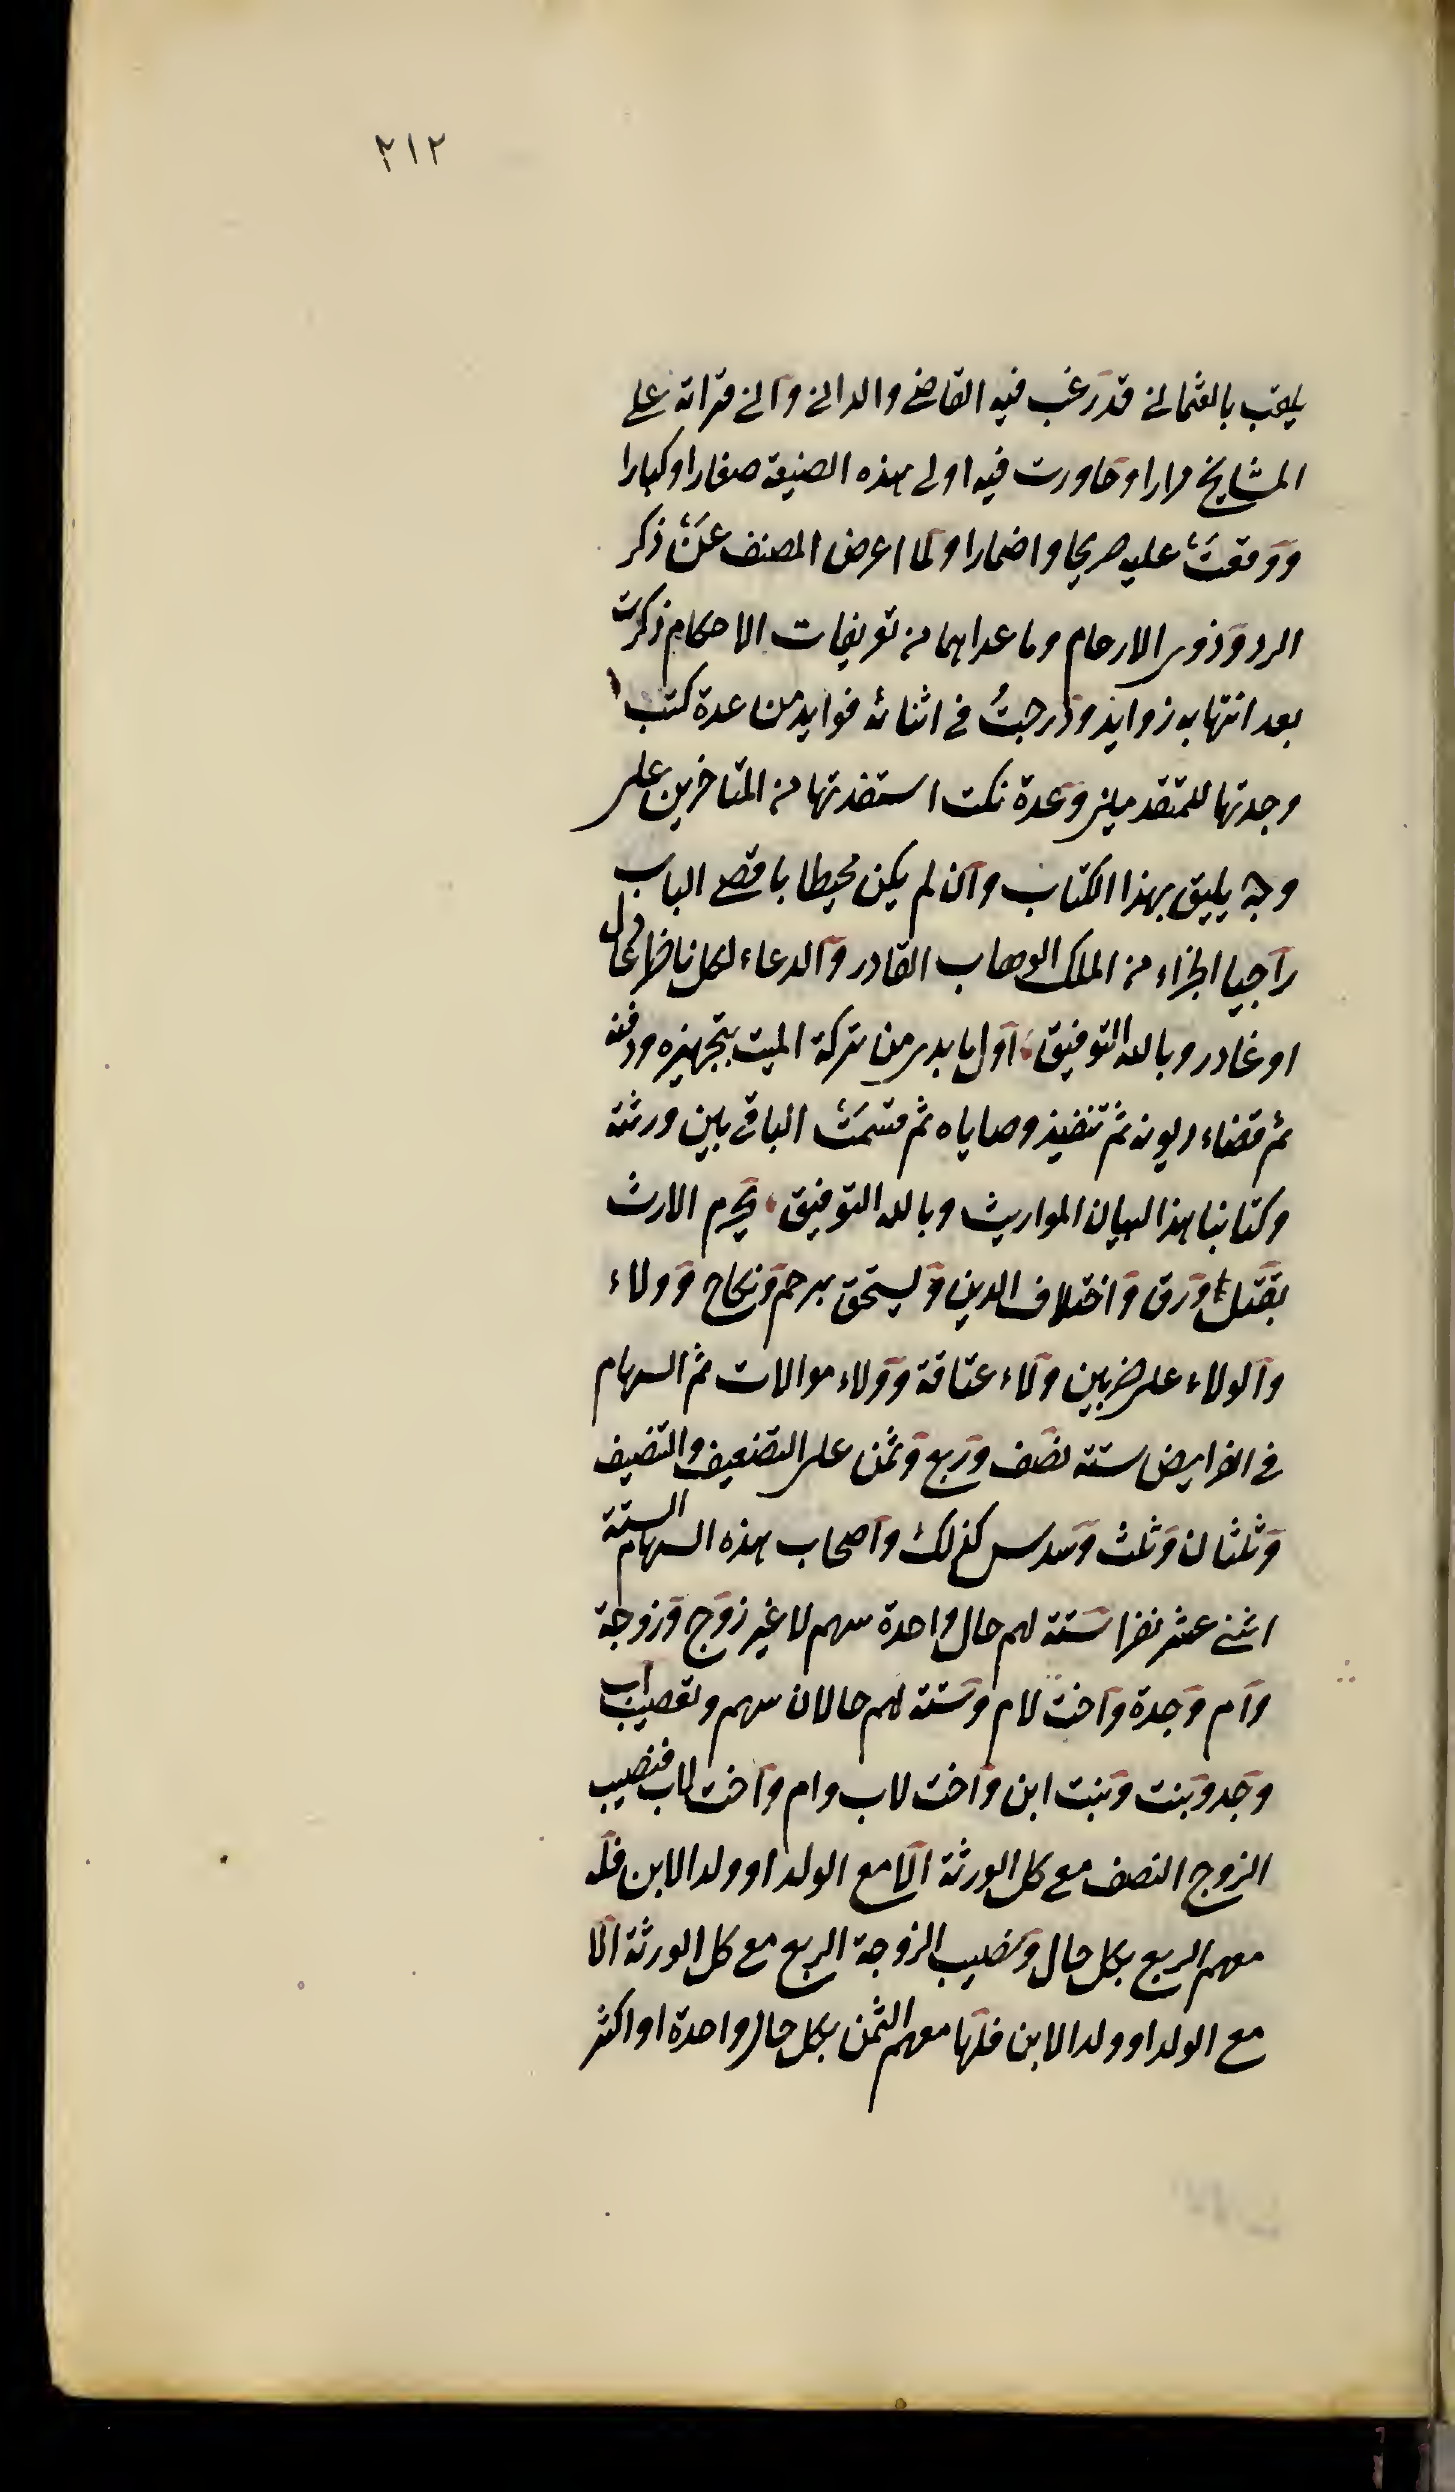 ٢١٢
يلقب بالعثماني قد رغب فيه القاضي والداني واني قراته على
المشايخ مرارا وحاورت فيه اولى هذه الصنيعة صغارا وكبارا
ووقعت عليه صريحا واضمارا ولما اعرض المصنف عن ذكر
الرد وذوى الارحام وما عداهما من تعريفات الاحكام ذكرت
بعد انتهابه زوايد ودرجت في اثنائه فوايد من عدة كتب
وجدتها للمتقدمين وعدة نكت استفدتها من المتاخرين على
وجه يليق بهذا الكتاب وان لم يكن محيطا باقصى الباب
راجيا الجزاء من الملك الوهاب القادر والدعاء لكل ناظر
او غادر وبالله التوفيق اول ما بدى من تركة الميت بتجهيزه ودفنه
ثم قضاء ديونه ثم تنفيذ وصاياه ثم قسمت الباقي بين ورثته
وكتابنا هذا لبيان المواريث وبالله التوفيق يحرم الارث
بقتل ورق واختلاف الدين ويستحق برحم ونكاح وولاء
والولاء على ضربين ولاء عتاقة وولاء موالات ثم السهام
في الفرايض ستة نصف وربع وثمن على التضعيف والتنصيف
وثلثان وثلث وسدس كذلك واصحاب هذه السهام الستة
اثنى عشر نفرا ستة لهم حال واحدة سهم لا غير زوج وزوجة
وام وجدة واخت لام وستة لهم حالان سهم وتعصيب اب
وجد وبنت وبنت ابن واخت لاب وام واخت لاب فنصيب
الزوج النصف مع كل الورثة الا مع الولد او ولد الابن فله
معهم الربع بكل حال ونصيب الزوجة الربع مع كل الورثة الا
مع الولد او ولد الابن فلها معهم الثمن بكل حال واحدة او اكثر